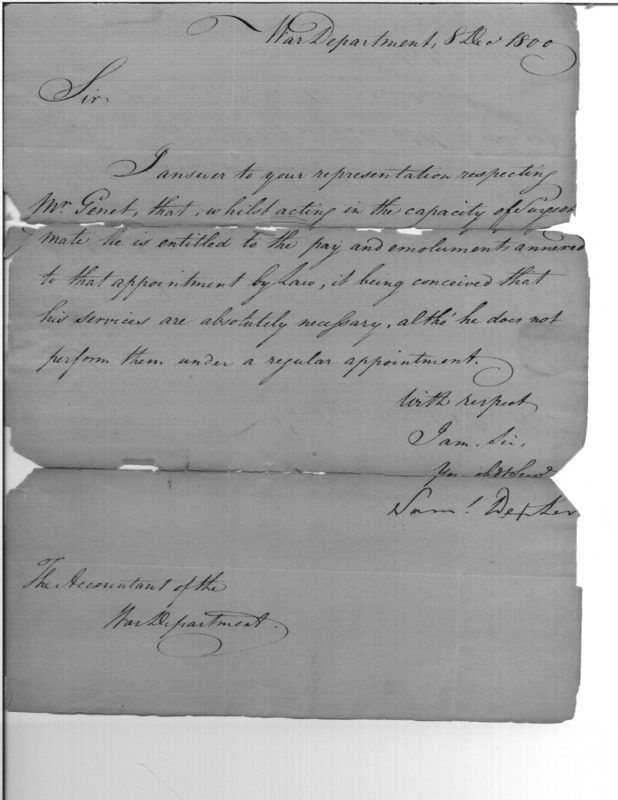 War Department, 8 Dec. 1800
Sir
I answer to your representation respecting
Mr. Genet, that, whilst acting in the capacity of Surgeon
mate he is entitled to the pay and emoluments annexed
to that appointment by Law, it being conceived that
his services are absolutely necessary, altho' he does not
perform them under a regular appointment.
With respect
I am, Sir,
Your Obd Serv
Saml. Dexter
The Accountant of the
War Department.